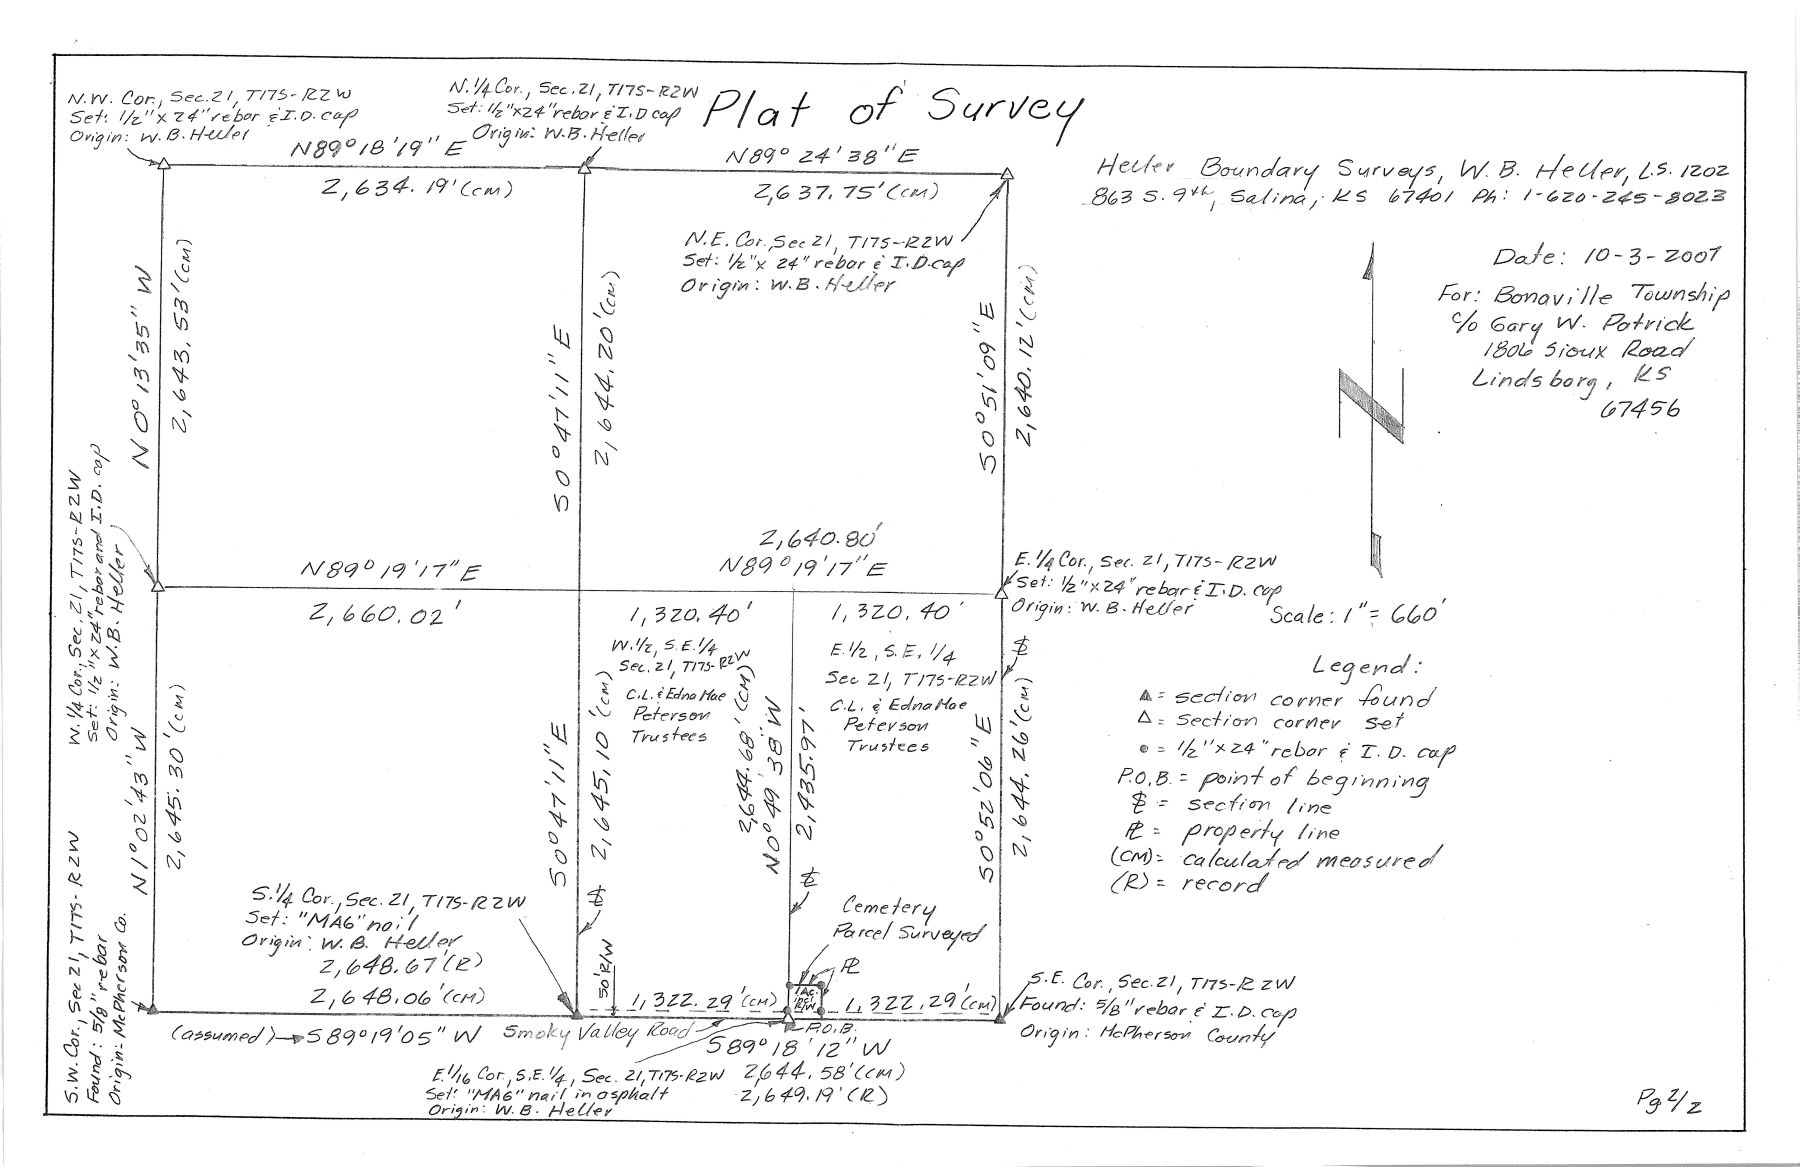 Plat of Survey
N.W. Cor., Sec. 21, T17S-R2W
Set: 1/2"x24" rebar & I.D. cap
Origin: W.B. Heller
N.1/4 Cor., Sec. 21, T17S-R2W
Set: 1/2"x24" rebar & I.D cap
Origin: W.B. Heller
N89°18'19" E
2,634.19'(cm)
N89° 24'38" E
2,637.75'(cm)
Heller Boundary Surveys, W. B. Heller, L.S. 1202
863 S. 9th, Salina, KS 67401 Ph: 1-620-245-8023
N.E. Cor., Sec 21, T17S-R2W
Set: 1/2"x 24" rebar & I.D. cap
Origin: W.B. Heller
Date: 10-3-2007
For: Bonaville Township
c/o Gary W. Patrick
1806 Sioux Road
Lindsborg, KS
67456
N
N0°13'35" W
2,643.53'(cm)
S0°47'11" E
2,644.20'(cm)
S0°51'09" E
2,640.12'(cm)
W.1/4 Cor., Sec. 21, T17S-R2W
Set: 1/2"x24" rebar and I.D. cap
Origin: W.B. Heller
N89°19'17" E
2,660.02'
2,640.80'
N89°19'17" E
1,320.40'
1,320.40'
E.1/4 Cor., Sec. 21, T17S-R2W
Set: 1/2"x24" rebar & I.D. cap
Origin: W.B. Heller
Scale: 1" = 660'
W.1/2, S.E.1/4
Sec. 21, T17S-R2W
C.L. & Edna Mae
Peterson
Trustees
E.1/2, S.E. 1/4
Sec 21, T17S-R2W
C.L. & Edna Mae
Peterson
Trustees
Legend:
▲ = section corner found
△ = section corner set
● = 1/2"x24" rebar & I.D. cap
P.O.B. = point of beginning
= section line
PL = property line
(CM) = calculated measured
(R) = record
N1°02'43" W
2,645.30'(cm)
S0°47'11" E
2,645.10'(cm)
2,644.68'(CM)
N0°49'38" W
2,435.97'
S0°52'06" E
2,644.26'(cm)
S.W. Cor., Sec 21, T17S-R2W
Found: 5/8" rebar
Origin: McPherson Co.
S.1/4 Cor., Sec. 21, T17S-R2W
Set: "MAG" nail
Origin: W.B. Heller
2,648.67'(R)
2,648.06'(cm)
(assumed) S89°19'05" W
50' R/W
Cemetery
Parcel Surveyed
PL
1,322.29'(cm)
1,322.29'(cm)
Smoky Valley Road
P.O.B.
S89°18'12" W
2,644.58'(cm)
2,649.19'(R)
E.1/16 Cor., S.E.1/4, Sec. 21, T17S-R2W
Set: "MAG" nail in asphalt
Origin: W.B. Heller
S.E. Cor., Sec. 21, T17S-R2W
Found: 5/8" rebar & I.D. cap
Origin: McPherson County
Pg 2/2